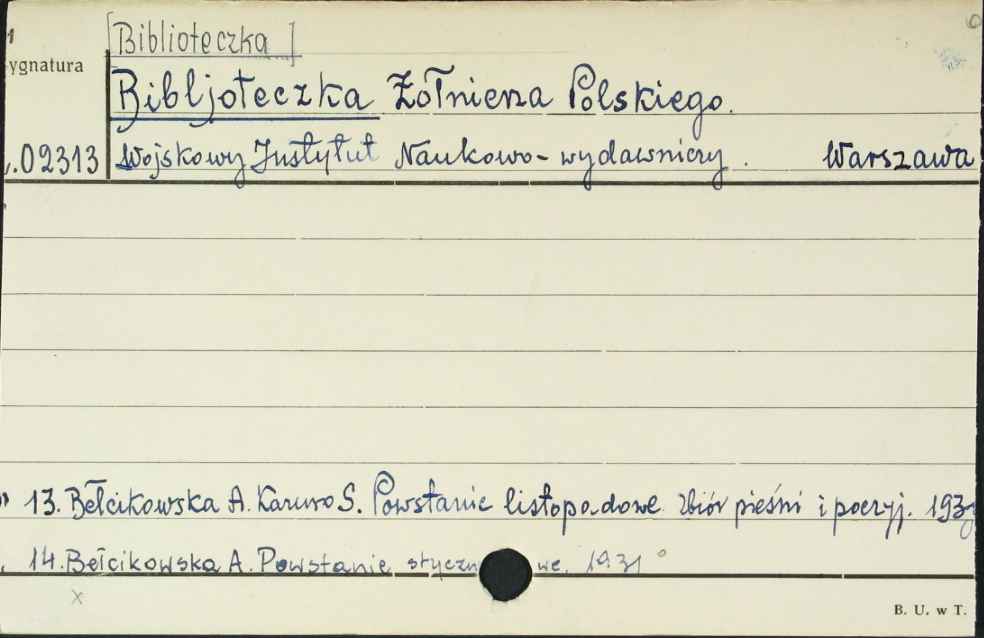 [Biblioteczka]
ygnatura
Bibljoteczka Żołnierza Polskiego.
.02313 Wojskowy Instytut Naukowo-wydawniczy. Warszawa
13. Bełcikowska A. Karwo S. Powstanie listopadowe zbiór pieśni i poezyj. 193
14. Bełcikowska A. Powstanie styczn we. 1931
x
B. U. w T.